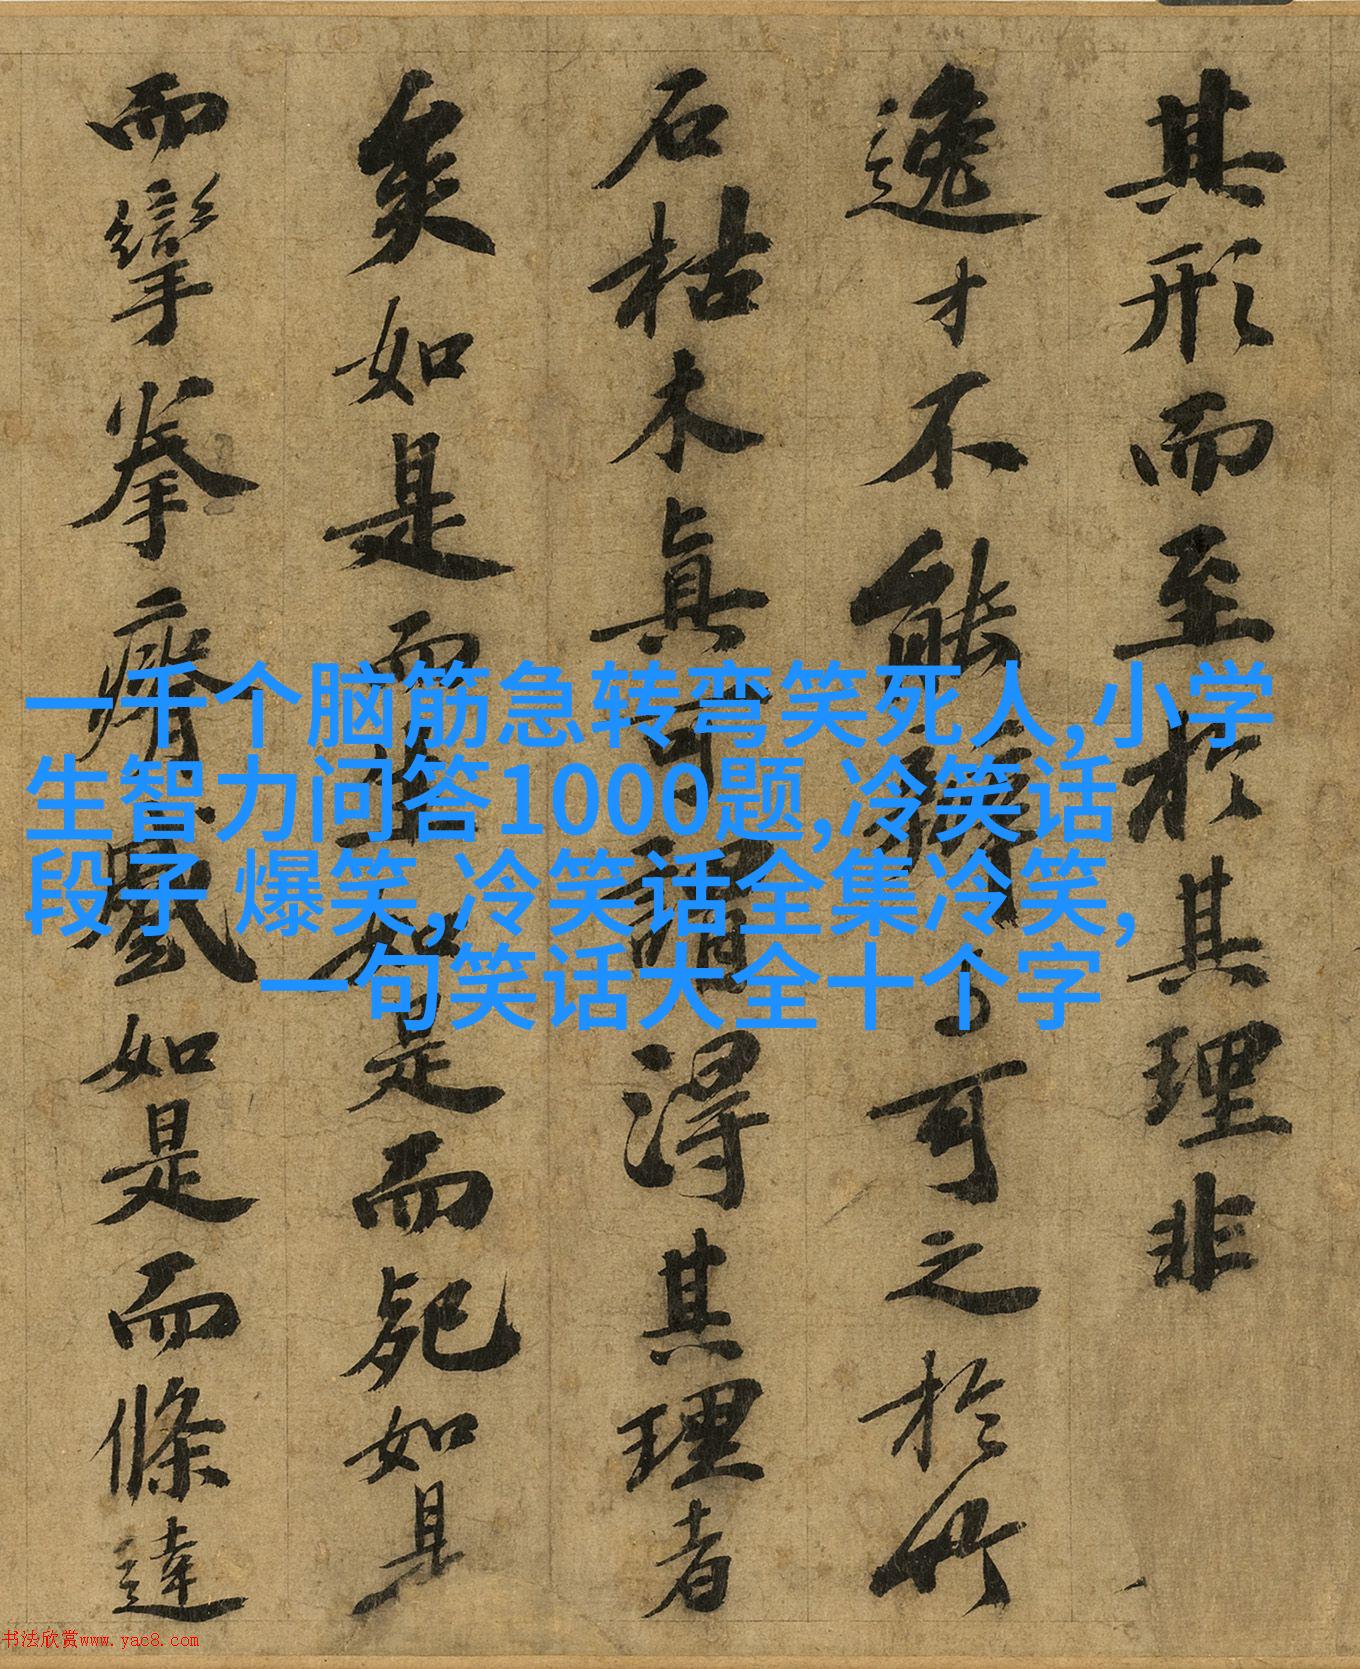 其形而至於其理非
逸才不能辨与可之於竹
石枯木真可謂得其理者
矣如是而生如是而死如是
而攣拳瘠蹙如是而條達
一千个脑筋急转弯笑死人,小学
生智力问答1000题,冷笑话
段子 爆笑,冷笑话全集冷笑,
一句笑话大全十个字
书法欣赏www.yac8.com